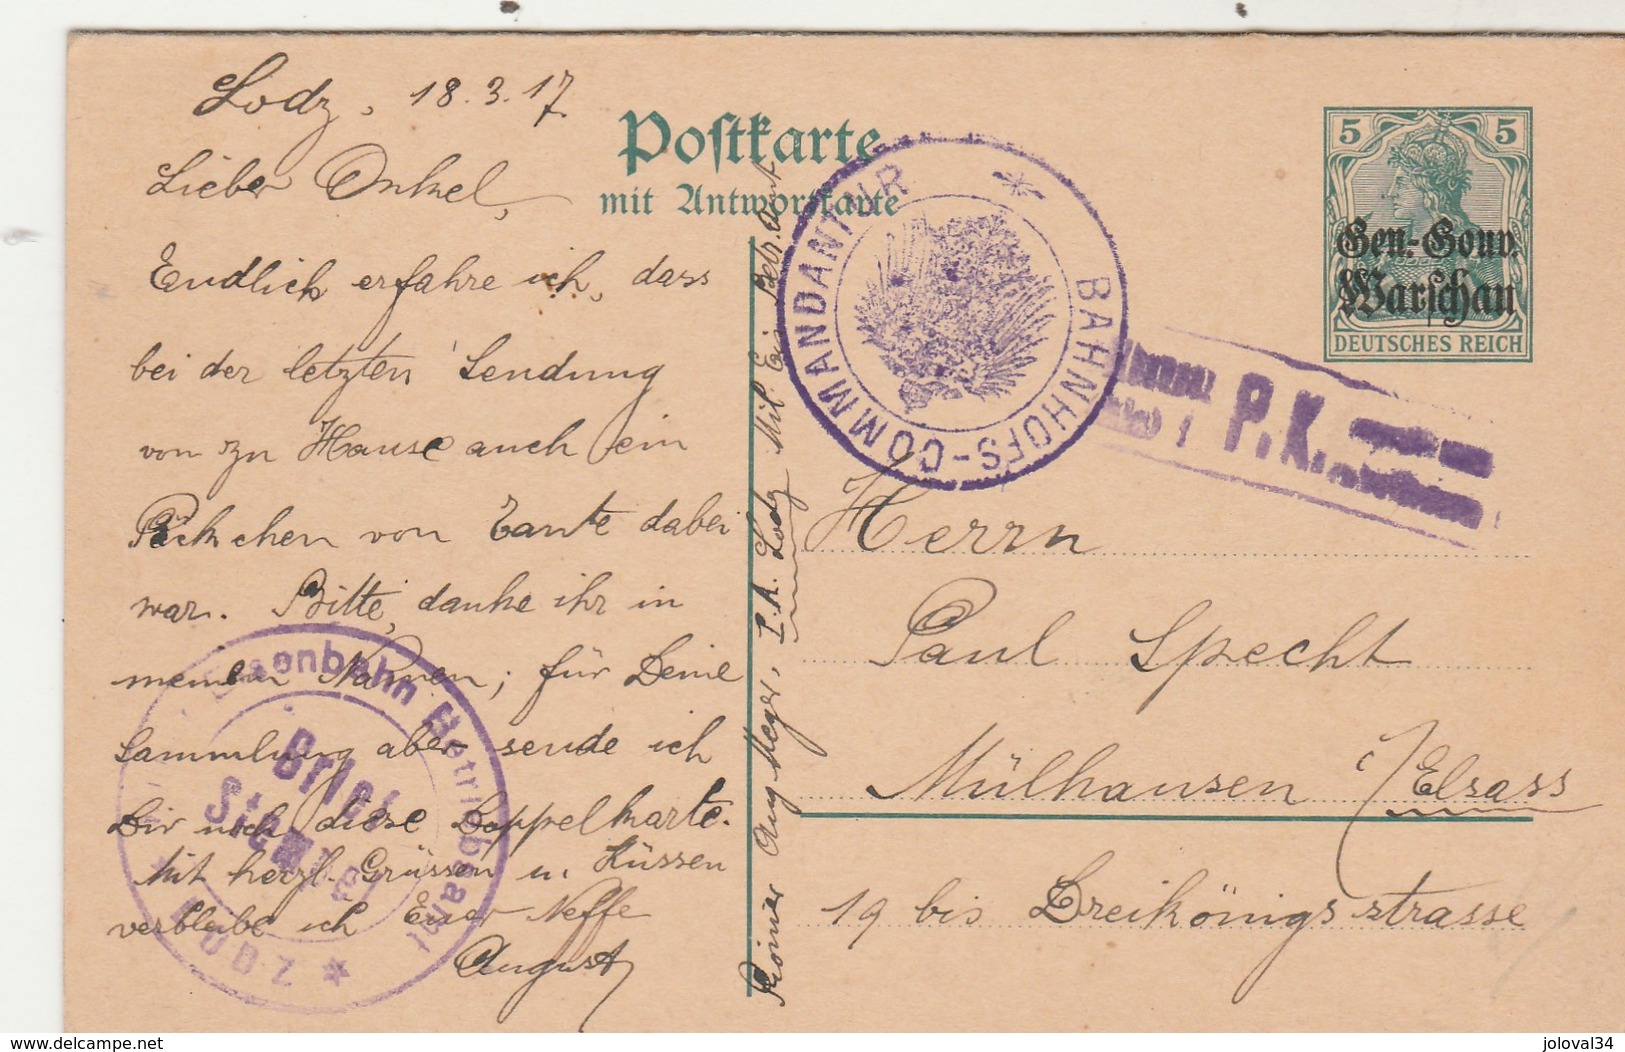 Lodz, 18.3.17
Lieber Onkel,
Endlich erfahre ich, dass
bei der letzten Sendung
von zu Hause auch ein
Päckchen von Tante dabei
war. Bitte, danke ihr in
meinem Namen; für Deine
Sammlung aber sende ich
Dir noch diese Doppelkarte.
Mit herzl. Grüssen u. Küssen
verbleibe ich Euer Neffe
August
Postkarte
mit Antwortkarte
5 5
Gen.-Gouv.
Warschau
DEUTSCHES REICH
BAHNHOFS-COMMANDANTUR
P.K.
Pionier Aug. Meger, z.A. Lodz Mil. Eis. Betr. Amt
Herrn
Paul Specht
Mülhausen i/Elsass
19 bis Dreikönigsstrasse
Eisenbahn Betriebsamt
Brief
Stempel
LODZ
www.delcampe.net
joloval34